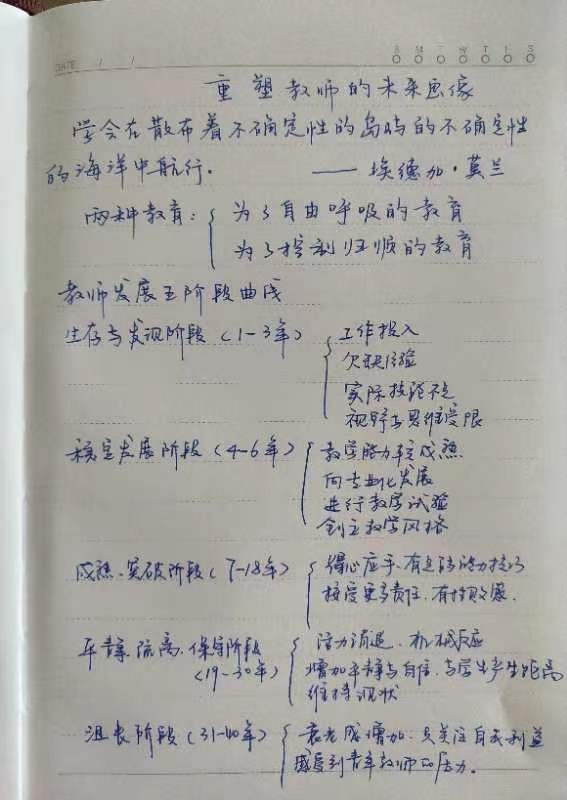 DATE / /
S M T W T F S
重塑教师的未来画像
学会在散布着不确定性的岛屿的不确定性
的海洋中航行.
——埃德加·莫兰
两种教育:
为了自由呼吸的教育
为了控制归顺的教育
教师发展五阶段曲线
生存与发现阶段(1-3年)
工作投入
欠缺经验
实际技能不足
视野与思维受限
稳定发展阶段(4-6年)
教学能力较成熟
向专业化发展
进行教学试验
创立教学风格
成熟、突破阶段(7-18年)
得心应手.有追求能力技巧
接受更多责任.有挫败感.
平静、疏离、保守阶段
(19-30年)
活力消退、机械反应
增加平静与自信.与学生产生距离
维持现状
沮丧阶段(31-40年)
衰老感增加.只关注自我利益
感受到青年教师的压力.